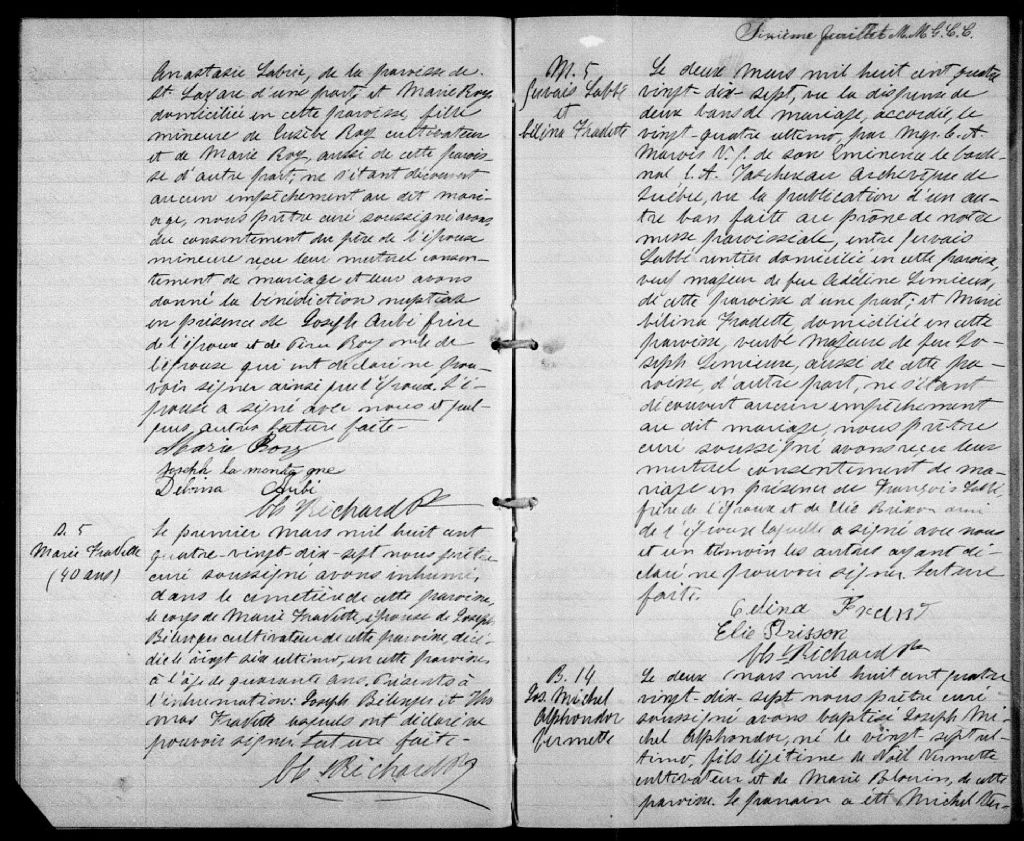 Anastasie Labrie, de la paroisse de
St. Lazare d'une part; et Marie Roy
domiciliée en cette paroisse, fille
mineure de Eusèbe Roy cultivateur
et de Marie Roy, aussi de cette parois-
se d'autre part; ne s'étant découvert
aucun empêchement au dit mari-
age, nous prêtre curé soussigné avons
du consentement du père de l'épouse
mineure reçu leur mutuel consen-
tement de mariage et leur avons
donné la bénédiction nuptiale
en présence de Joseph Aubé frère
de l'époux et de Roy de
l'épouse qui ont déclaré ne pou-
voir signer ainsi que l'époux. L'é-
pouse a signé avec nous et quel-
ques autres lecture faite-
Marie Roy
Joseph la monta gne
Delvina Aubé
Richard Ptr
S. 5
Marie Fradette
(40 ans)
Le premier mars mil huit cent
quatre-vingt-dix-sept nous prêtre
curé soussigné avons inhumé,
dans le cimetière de cette paroisse,
le corps de Marie Fradette, épouse de Joseph
Bélanger cultivateur de cette paroisse, décé-
dée le vingt six ultimo, en cette paroisse
à l'âge de quarante ans. Présents à
l'inhumation: Joseph Bélanger et Tho
mas Fradette lesquels ont déclaré ne
pouvoir signer lecture faite-
Richard Ptr
Sixième feuillet M. M. G. C. C.
M. 5
Gervais Labbé
et
Célina Fradette
Le deux mars mil huit cent quatre
vingt-dix-sept, vu la dispense de
deux bans de mariage, accordée, le
vingt-quatre ultimo, par Mgr. C. A.
Marois V. G. de son Eminence le Cardi-
nal E. A. Taschereau Archevêque de
Québec, vu la publication d'un au-
tre ban faite au prône de notre
messe paroissiale, entre Gervais
Labbé rentier domicilié en cette paroisse,
veuf majeur de feu Adéline Lemieux,
de cette paroisse d'une part; et Marie
Célina Fradette, domiciliée en cette
paroisse, veuve majeure de feu Jo-
seph Lemieux, aussi de cette pa-
roisse, d'autre part, ne s'étant
découvert aucun empêchement
au dit mariage, nous prêtre
curé soussigné avons reçu leur
mutuel consentement de ma-
riage en présence de François Labbé,
frère de l'époux et de Elie Brisson ami
de l'épouse laquelle a signé avec nous
et un témoin les autres ayant dé-
claré ne pouvoir signer lecture
faite.
Celina
Elie Brisson
Richard Ptr
B. 14
Jos. Michel
Alphondor
Vermette
Le deux mars mil huit cent quatre
vingt-dix-sept nous prêtre curé
soussigné avons baptisé Joseph Mi-
chel Alphondor, né le vingt-sept ul-
timo, fils légitime de Noël Vermette
cultivateur et de Marie Blouin, de cette
paroisse. Le parrain a été Michel Ver-